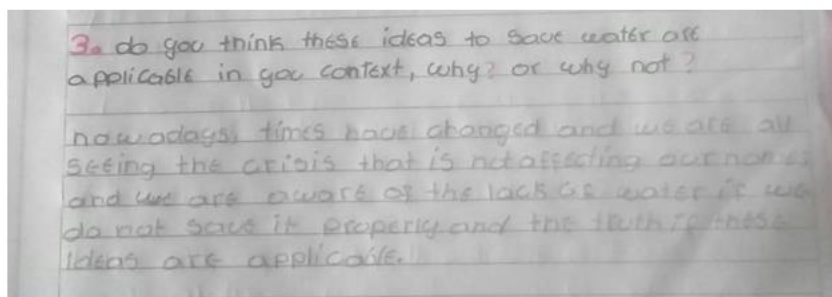 3. do you think these ideas to save water are
applicable in you context, why? or why not?
nowadays, times have changed and we are all
seeing the crisis that is not affecting our
and we are aware of the lack of water if we
do not save it properly and the truth is these
ideas are applicable.